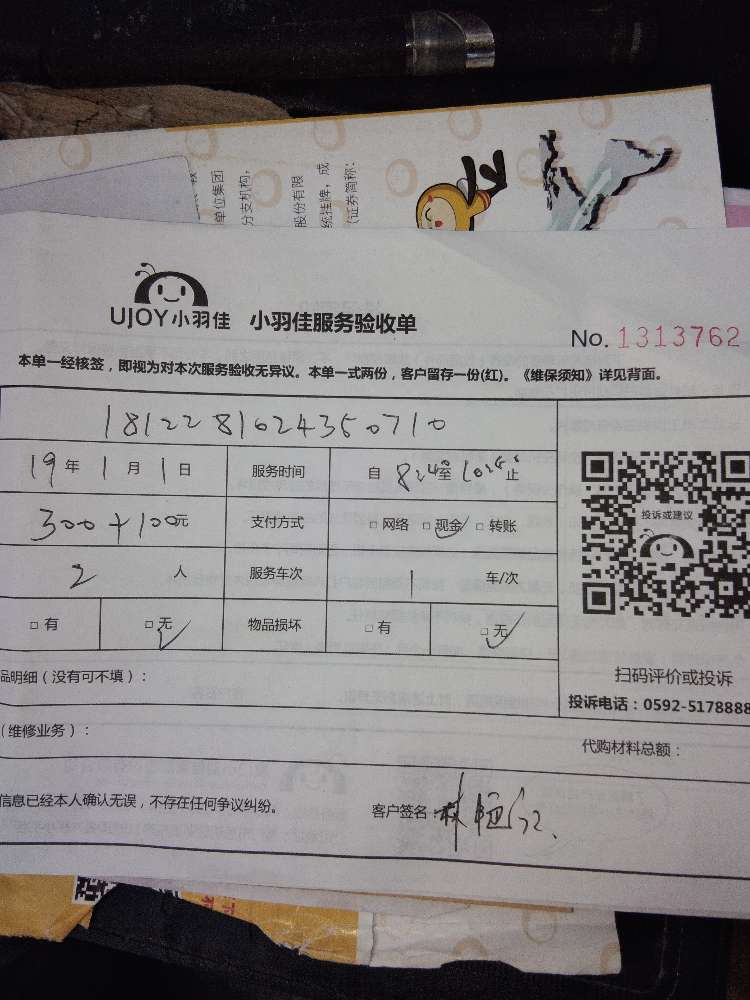 单位集团
分支机构，
股份有限
统挂牌，成
(证券简称：
UJOY小羽佳 小羽佳服务验收单
No. 1313762
本单一经核签，即视为对本次服务验收无异议。本单一式两份，客户留存一份(红)。《维保须知》详见背面。
1812281624350710
19年1月1日 服务时间 自 8:24至10:24止
300+100元 支付方式 □网络 □现金 □转账
2人 服务车次 1车/次
□有 □无 物品损坏 □有 □无
投诉或建议
扫码评价或投诉
投诉电话：0592-5178888
品明细（没有可不填）：
（维修业务）： 代购材料总额：
信息已经本人确认无误，不存在任何争议纠纷。 客户签名：